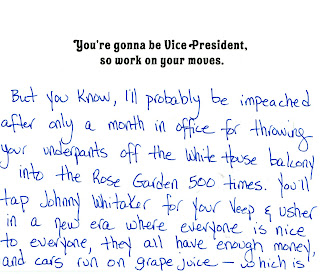 You're gonna be Vice President,
so work on your moves.
But you know, I'll probably be impeached
after only a month in office for throwing
your underpants off the White House balcony
into the Rose Garden 500 times. You'll
tap Johnny Whitaker for your Veep & usher
in a new era where everyone is nice
to everyone, they all have enough money,
and cars run on grape juice — which is